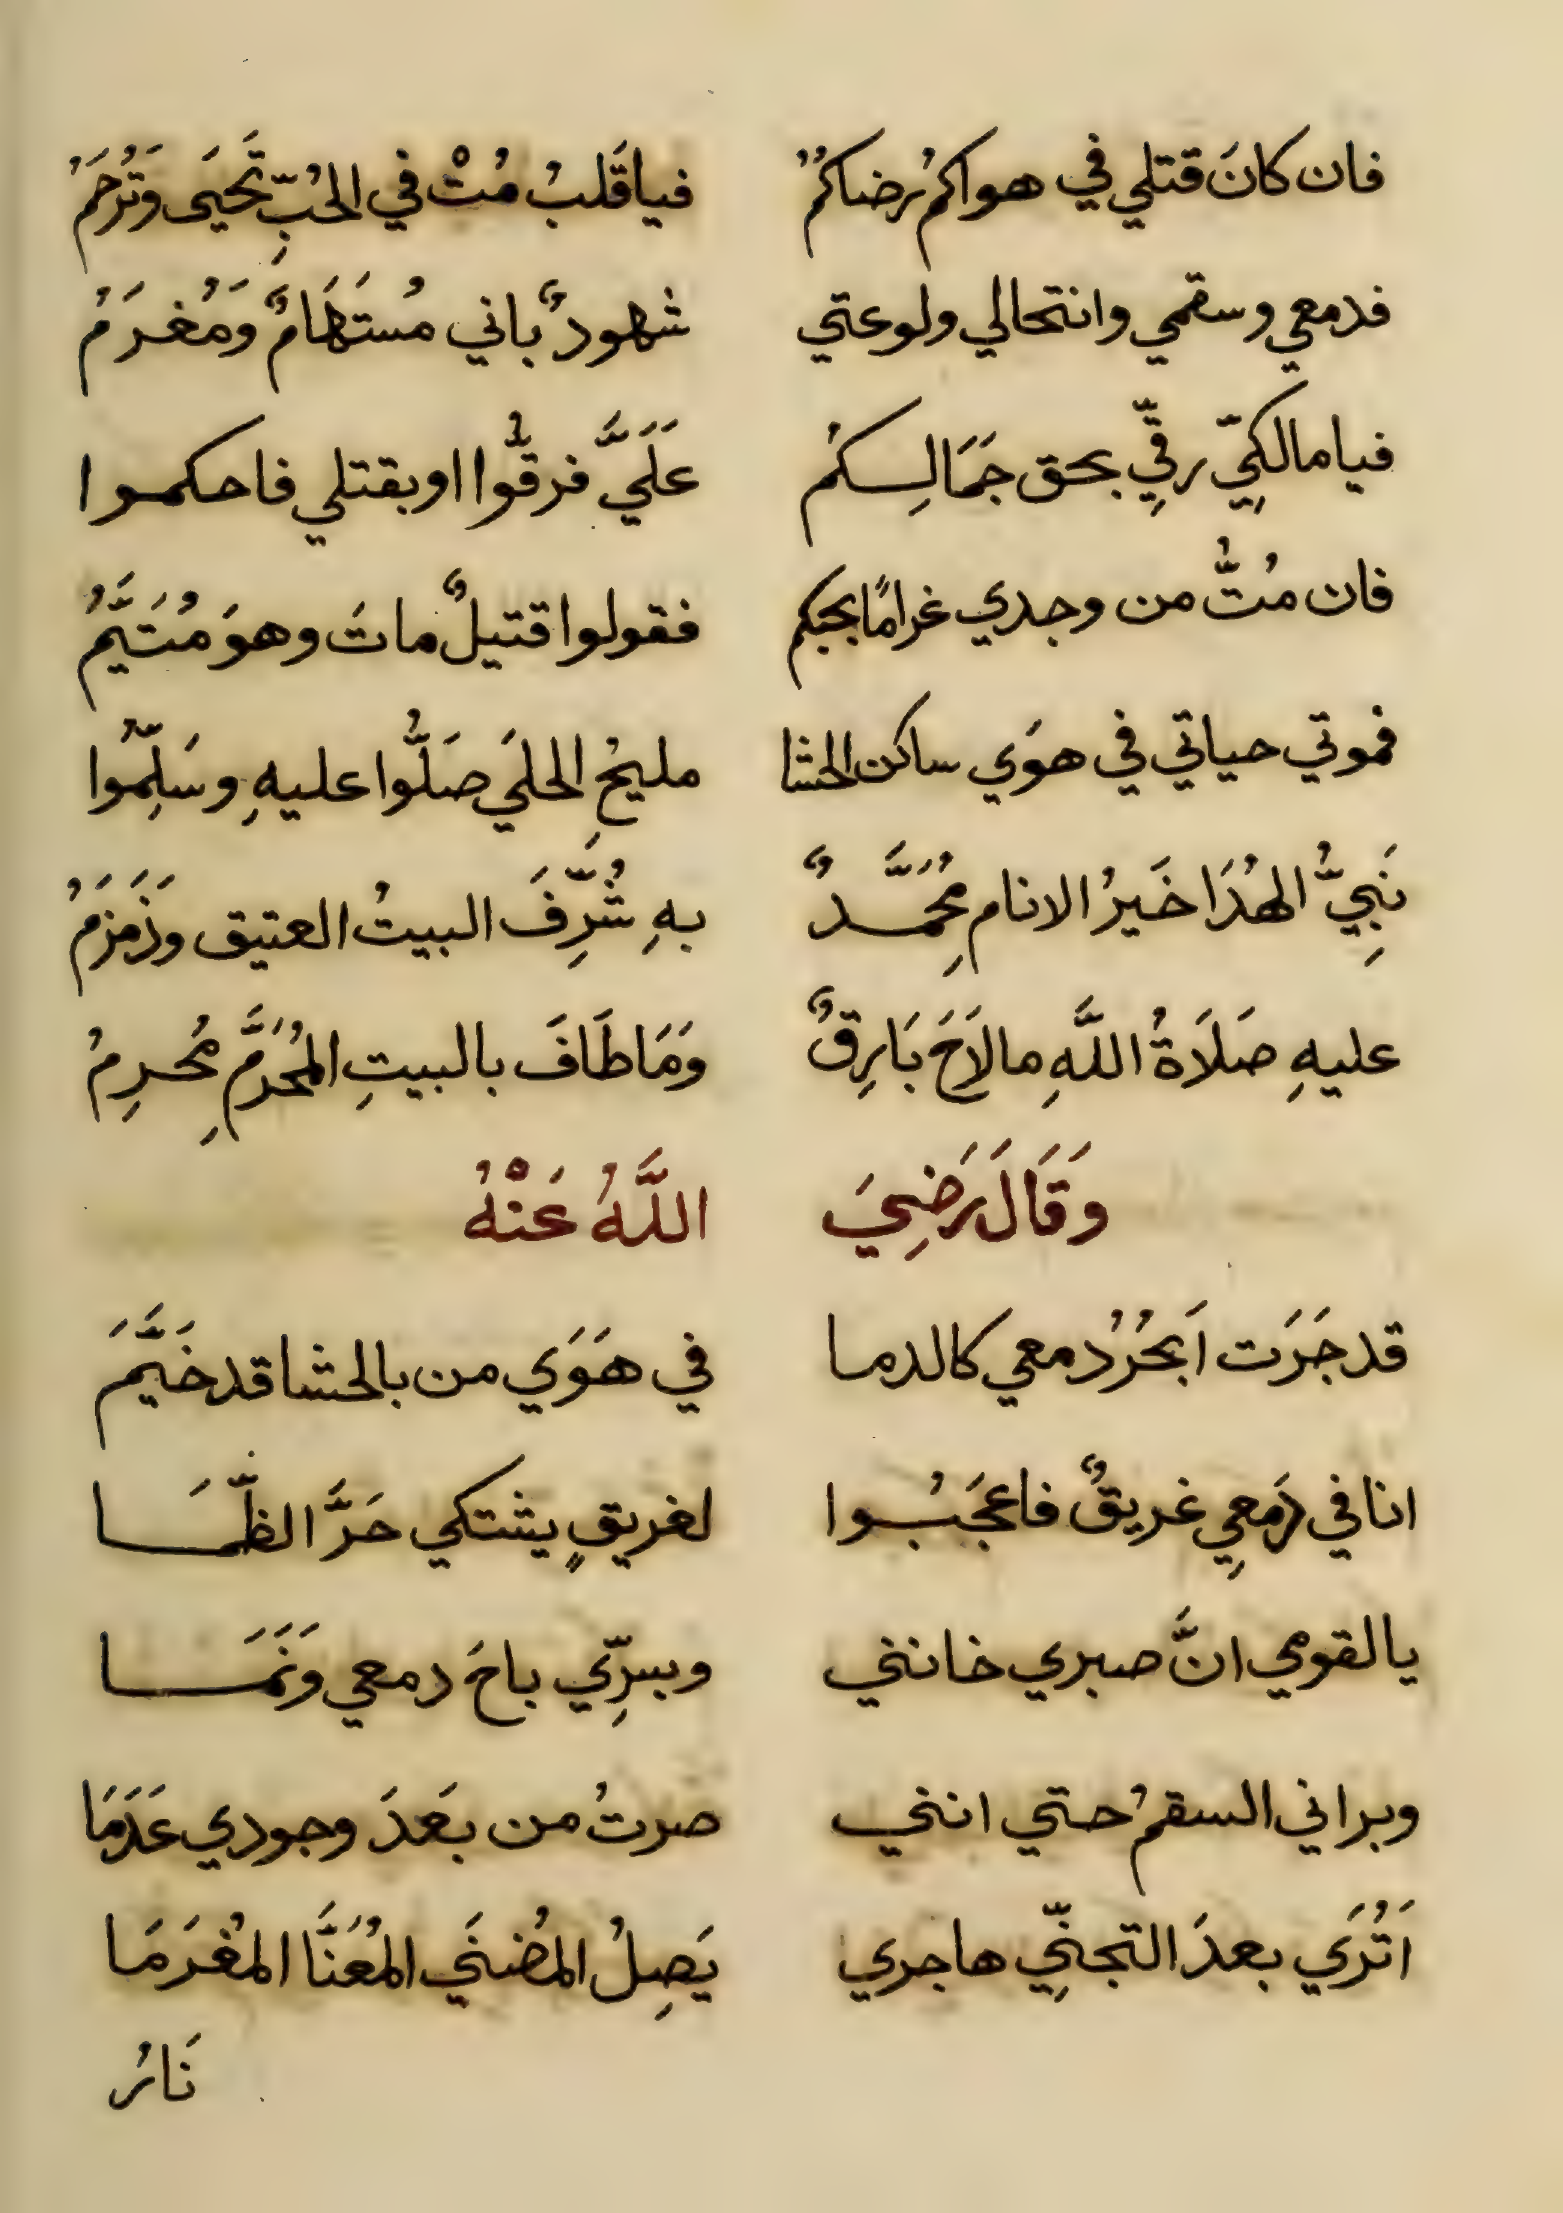 فان كانَ قتلي في هواكمُ رضاكمُ فياقَلبُ مُتْ في الحُبِّ تَحْيَى وَتُرْحَمُ
فدمعي وسقمي وانتحالي ولوعتي شهودٌ باني مُستَهَامٌ وَمُغرَمُ
فيا مالكِيّ رقِّي بحق جَمَالِكُم عَلَيَّ فرقُّوا او بقتلي فاحكموا
فان مُتُّ من وجدي غرامًا بحبكم فقولوا قتيلٌ ماتَ وهوَ مُتَيَّمُ
فموتي حياتي في هوَي ساكن الحشا مليحُ الحلَي صَلُّوا عليهِ وسَلِّمُوا
نَبِيُّ الهُدَا خَيرُ الانامِ مُحَمَّدٌ بهِ شُرِّفَ البيتُ العتيق وزَمزَمُ
عليهِ صَلَاةُ اللَّهِ مالَاحَ بَارِقٌ وَمَا طَافَ بالبيتِ المُحَرَّمِ مُحرِمُ
وَقَالَ رَضِيَ اللَّهُ عَنْهُ
قد جَرَت اَبحُرُ دمعي كالدما في هَوَي من بالحشا قد خَيَّمَ
انا في دَمعِي غريقٌ فاعجَبُوا لغريقٍ يشتكي حَرَّ الظَّمَا
يالقومي انَّ صبري خانني وبسِرِّي باحَ دمعي وَنَمَا
وبراني السقمُ حتي انني صرتُ من بَعدَ وجودي عَدَمَا
اَتُرَي بعدَ التجنِّي هاجري يَصِلُ المُضنَي المُعَنَّا المُغرَمَا
نَارُ